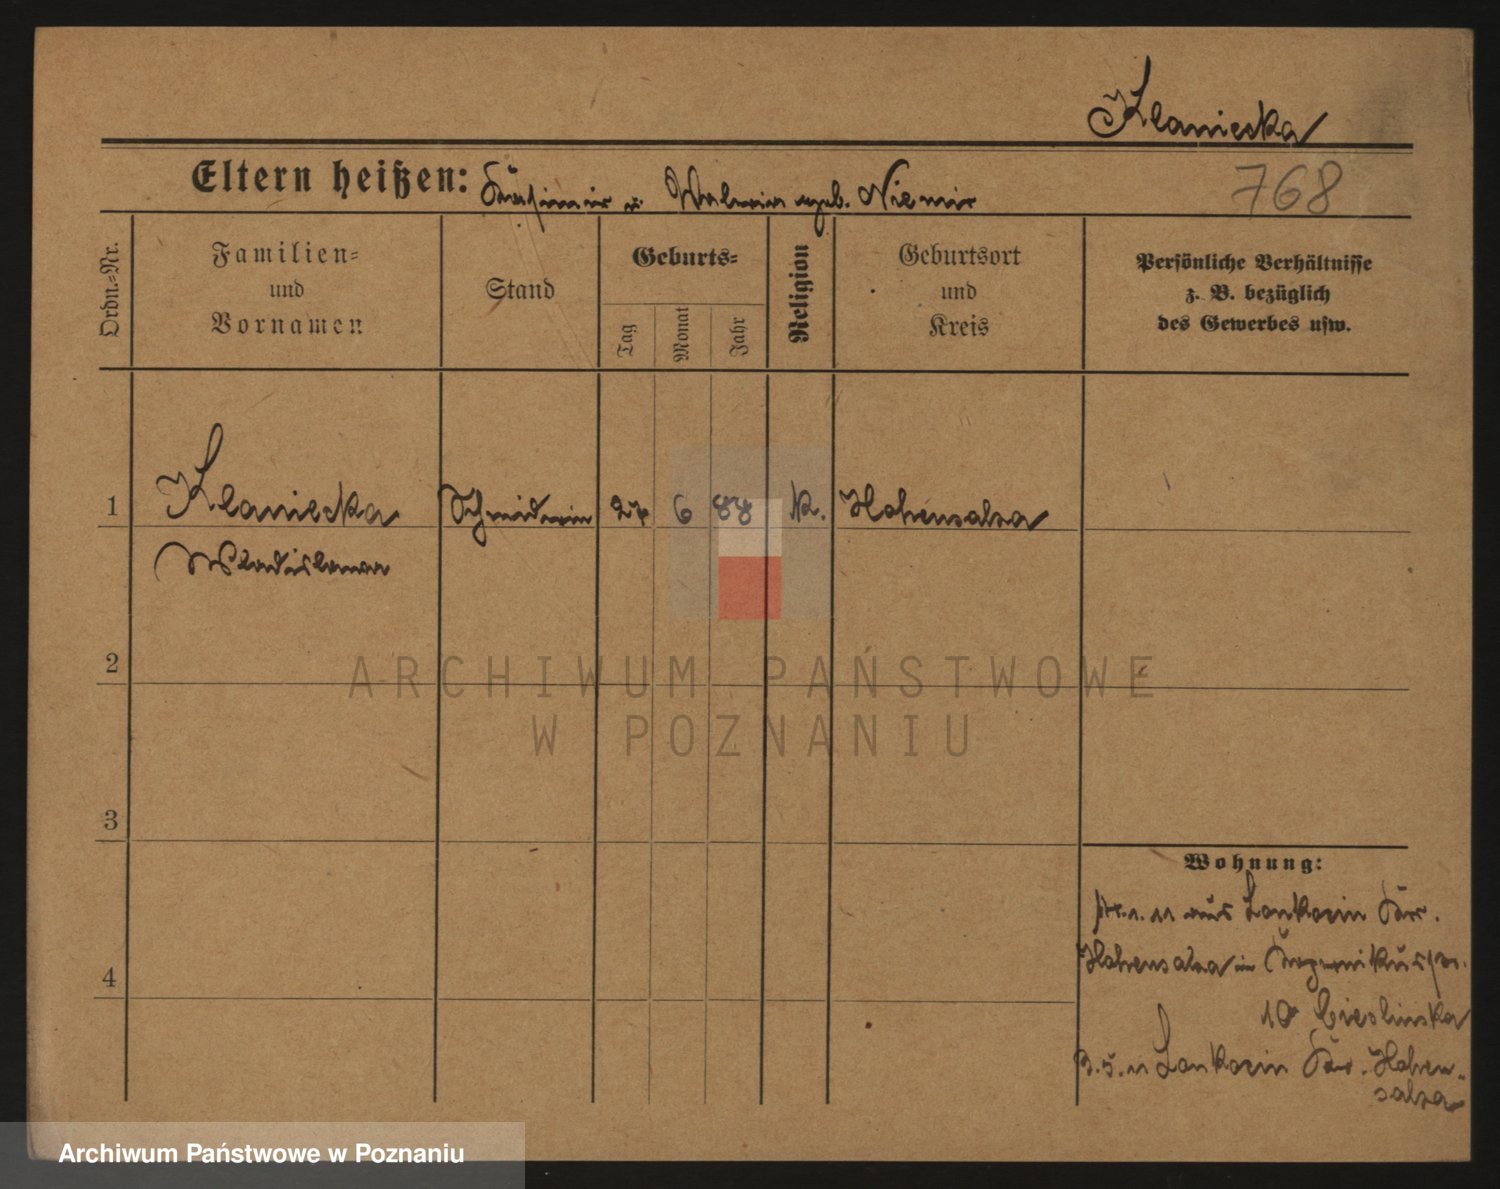 Klaniecka
Eltern heißen: Kasimir u. Waleria geb. Niemir
768
Ordn.-Nr.
Familien-
und
Vornamen
Stand
Geburts-
Tag
Monat
Jahr
Religion
Geburtsort
und
Kreis
Persönliche Verhältnisse
z. B. bezüglich
des Gewerbes usw.
1 Klaniecka Schneiderin 27 6 88 K. Hohensalza
Wladislawa
2
3
4
Wohnung:
11 aus Kr.
Hohensalza in
10 Cieslinska
3. 5. 11 Kr. Hohen-
salza
ARCHIWUM PAŃSTWOWE
W POZNANIU
Archiwum Państwowe w Poznaniu